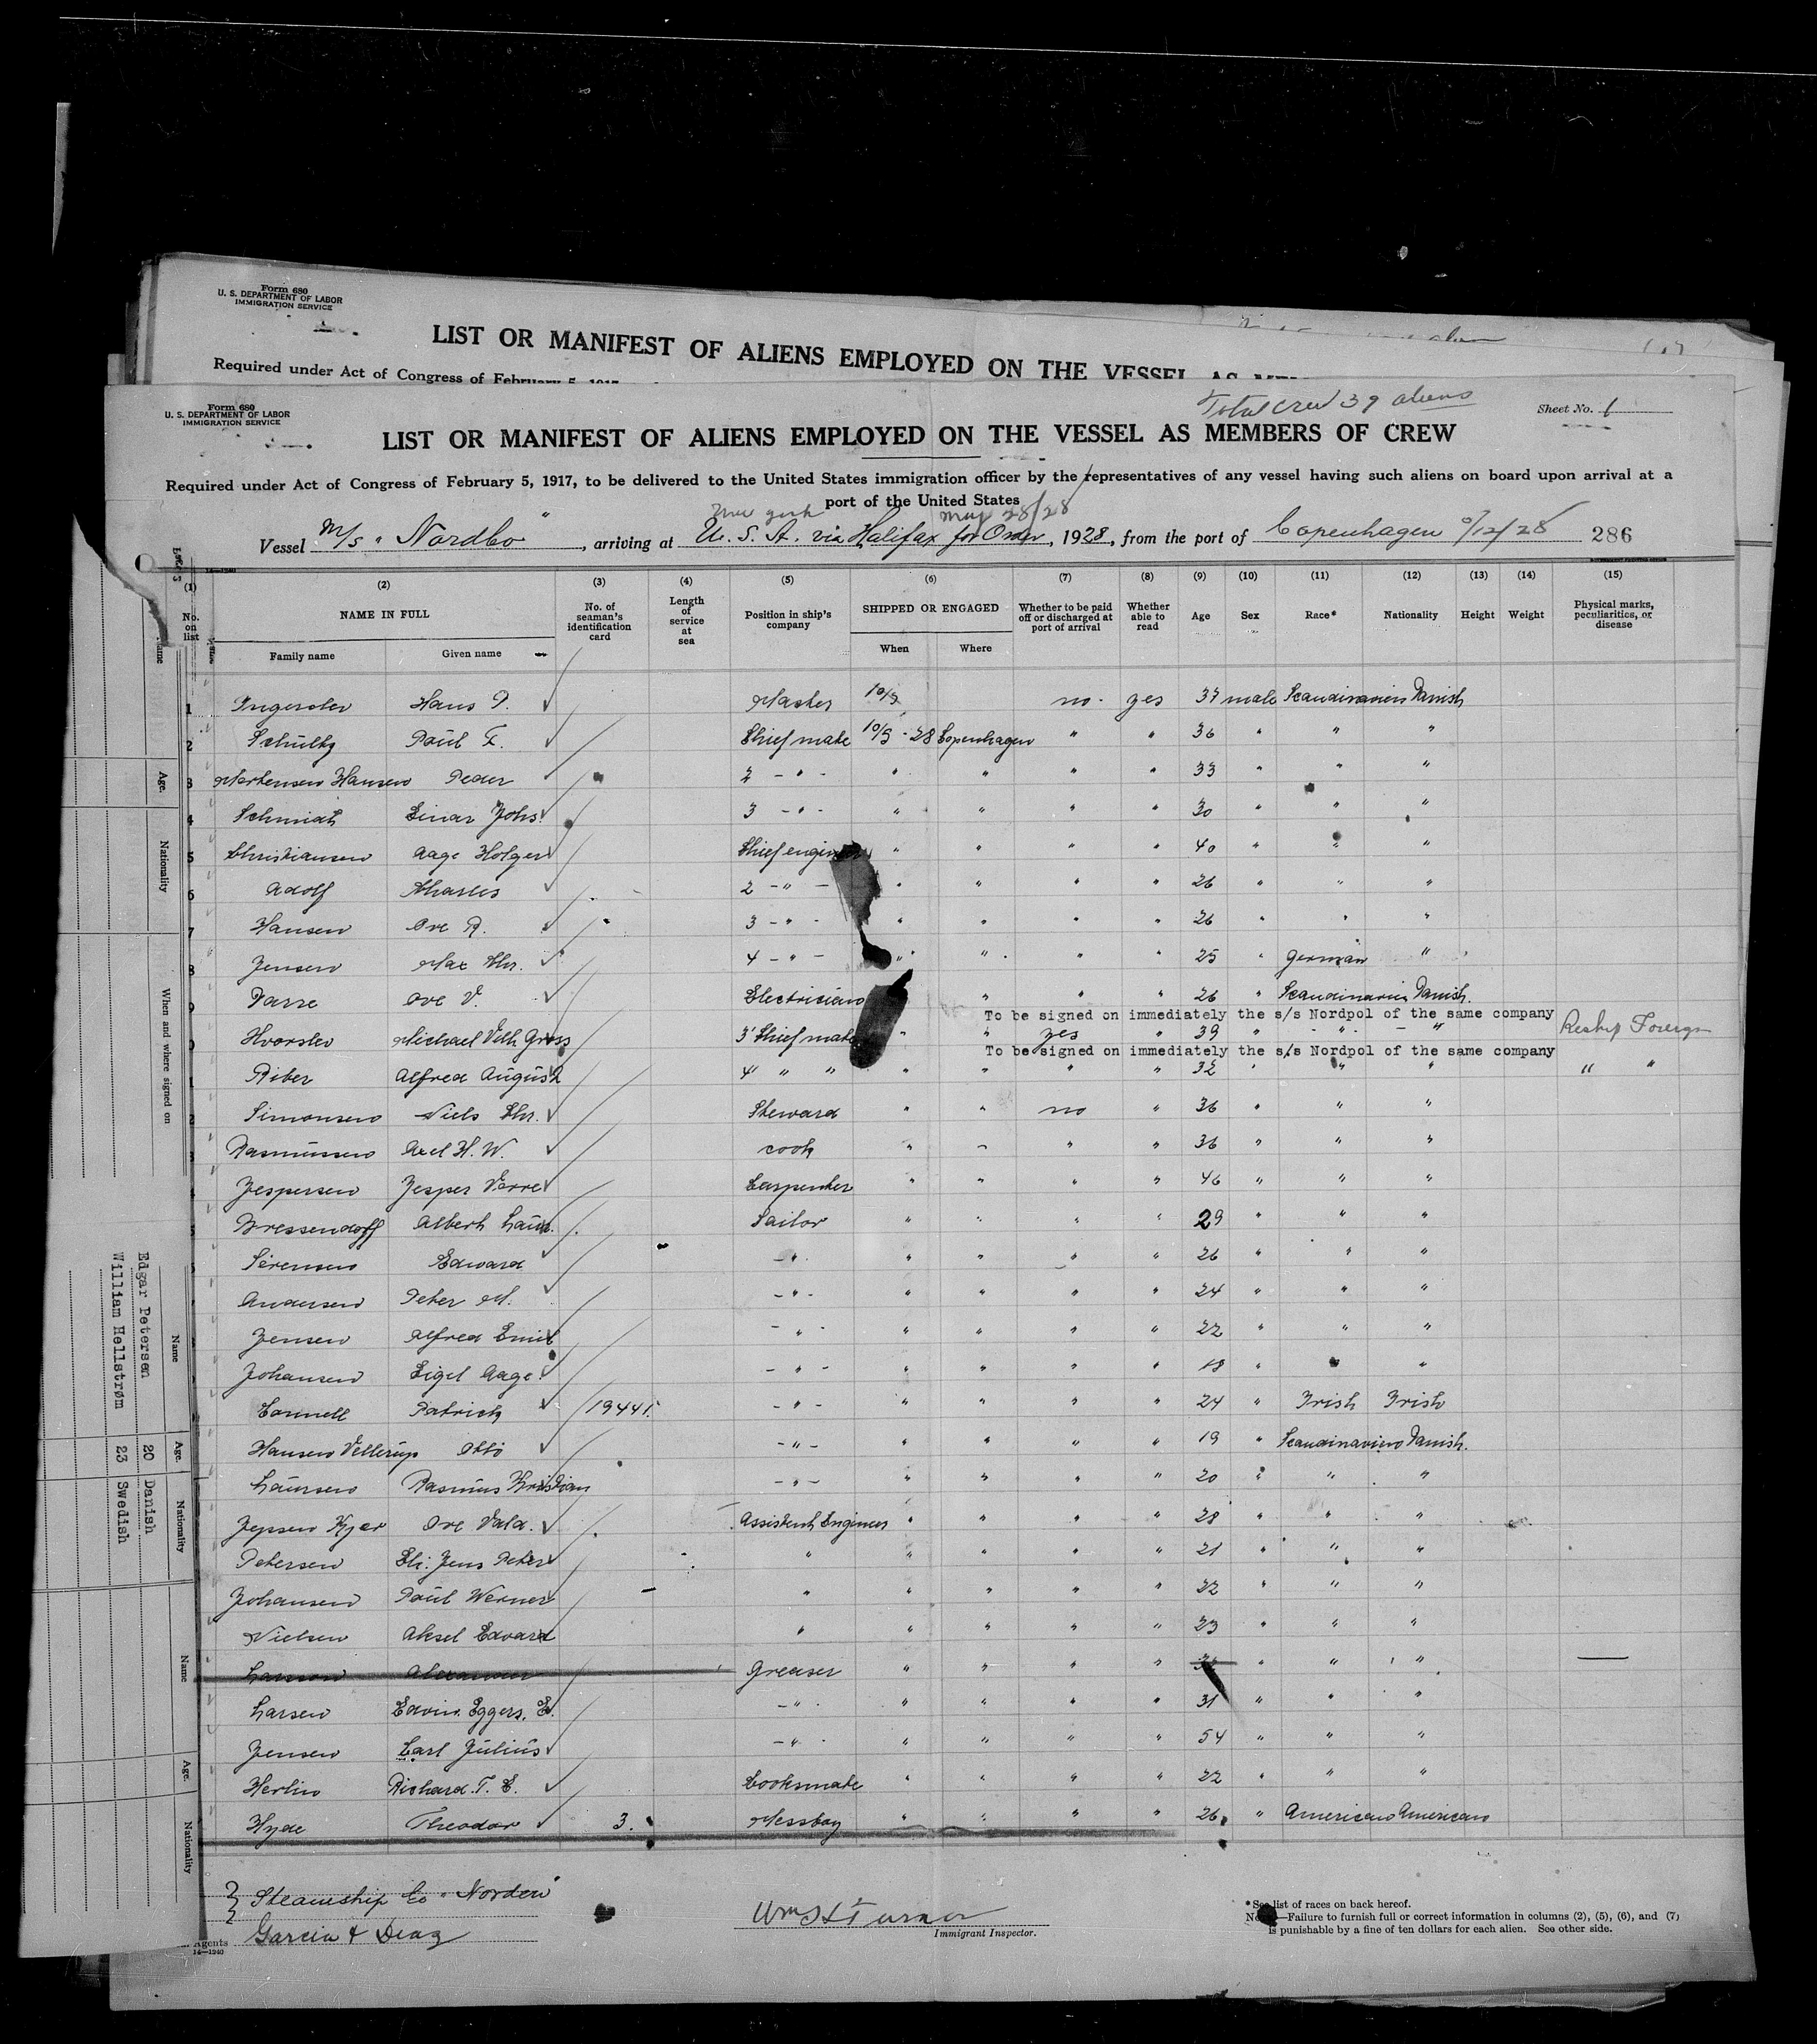 Form 680
U. S. DEPARTMENT OF LABOR
IMMIGRATION SERVICE
LIST OR MANIFEST OF ALIENS EMPLOYED ON THE VESSEL AS
Required under Act of Congress of February 5, 1917
Total crew 39 aliens
Form 680
U. S. DEPARTMENT OF LABOR
IMMIGRATION SERVICE
Sheet No. 1
LIST OR MANIFEST OF ALIENS EMPLOYED ON THE VESSEL AS MEMBERS OF CREW
Required under Act of Congress of February 5, 1917, to be delivered to the United States immigration officer by the representatives of any vessel having such aliens on board upon arrival at a
port of the United States
New York May 28/28
Vessel M/s "Nordbo", arriving at U. S. A. via Halifax for, 1928, from the port of Copenhagen /12/28 286
(1) (2) (3) (4) (5) (6) (7) (8) (9) (10) (11) (12) (13) (14) (15)
No. on list NAME IN FULL No. of seaman's identification card Length of service at sea Position in ship's company SHIPPED OR ENGAGED Whether to be paid off or discharged at port of arrival Whether able to read Age Sex Race* Nationality Height Weight Physical marks, peculiarities, or disease
Family name Given name When Where
1 Hans P. Master no. yes 37 male Scandinavien Danish
2 Schultz Paul F. Chief mate 10/5 - 28 Copenhagen " " 36 " " "
3 Mortensen Hansen Peder 2 - " - " " " " 33 " " "
4 Schmidt Einar Johs. 3 - " - " " " " 30 " " "
5 Christiansen Aage Holger Chief engineer " " " " 40 " " "
6 Adolf Charles 2 - " - " " " " 26 " " "
7 Hansen Ove R. 3 - " - " " " " 26 " " "
8 Jensen Max Chr. 4 - " - " " " " 25 " German "
9 Ove V. Electrician " " " 26 " Scandinavien Danish.
To be signed on immediately the s/s Nordpol of the same company
Hvorslev Michael Vilh Gross 3' Chief mate " " yes " 39 " " " Reship Foreign
To be signed on immediately the s/s Nordpol of the same company
1 Riber Alfred August 4' " " " " " " 32 " " " " "
2 Simonsen Niels Chr. Steward " " no " 36 " " "
3 Rasmussen Axel H. W. cook " " " " 36 " " "
Jespersen Jesper Carpenter " " " " 46 " " "
5 Bressendorff Albert Laur. Sailor " " " " 29 " " "
Sörensen Edward - " - " " " " 26 " " "
Andersen Peter M. - " - " " " " 24 " " "
Jensen Alfred Emil - " - " " " " 22 " " "
Johansen Eigil Aage - " - " " " " 18 " " "
Connell Patrick 19441. - " - " " " " 24 " Irish Irish
Hansen Vellerup Otto - " - " " " " 19 " Scandinavien Danish.
Laursen Rasmus Kristian - " - " " " " 20 " " "
Jepsen Kjer Ove Vald. Assistent Engineer " " " " 28 " " "
Petersen Jens Peter " " " " " 21 " " "
Johansen Paul Werner " " " " " 22 " " "
Nielsen Aksel Edvard " " " " " 23 " " "
Larsson Alexander Greaser " " " " " " "
Larsen Edvin. Eggers. E. - " - " " " " 31 " " "
Jensen Carl Julius - " - " " " " 54 " " "
Herlin Richard. T. E. Cooksmate " " " " 22 " " "
Hyde Theodor 3. Messboy " " " " 26 " American American
Steamship Co "Norden"
Garcia & Diaz
Agents
14—1240
Wm H Turner
Immigrant Inspector.
* See list of races on back hereof.
Note—Failure to furnish full or correct information in columns (2), (5), (6), and (7)
is punishable by a fine of ten dollars for each alien. See other side.
Age. Nationality When and where signed on
Name Age. Nationality
Edgar Petersen 20 Danish
William Hellstrøm 23 Swedish
Name Age. Nationality